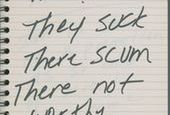 They suck
There scum
There not
worthy